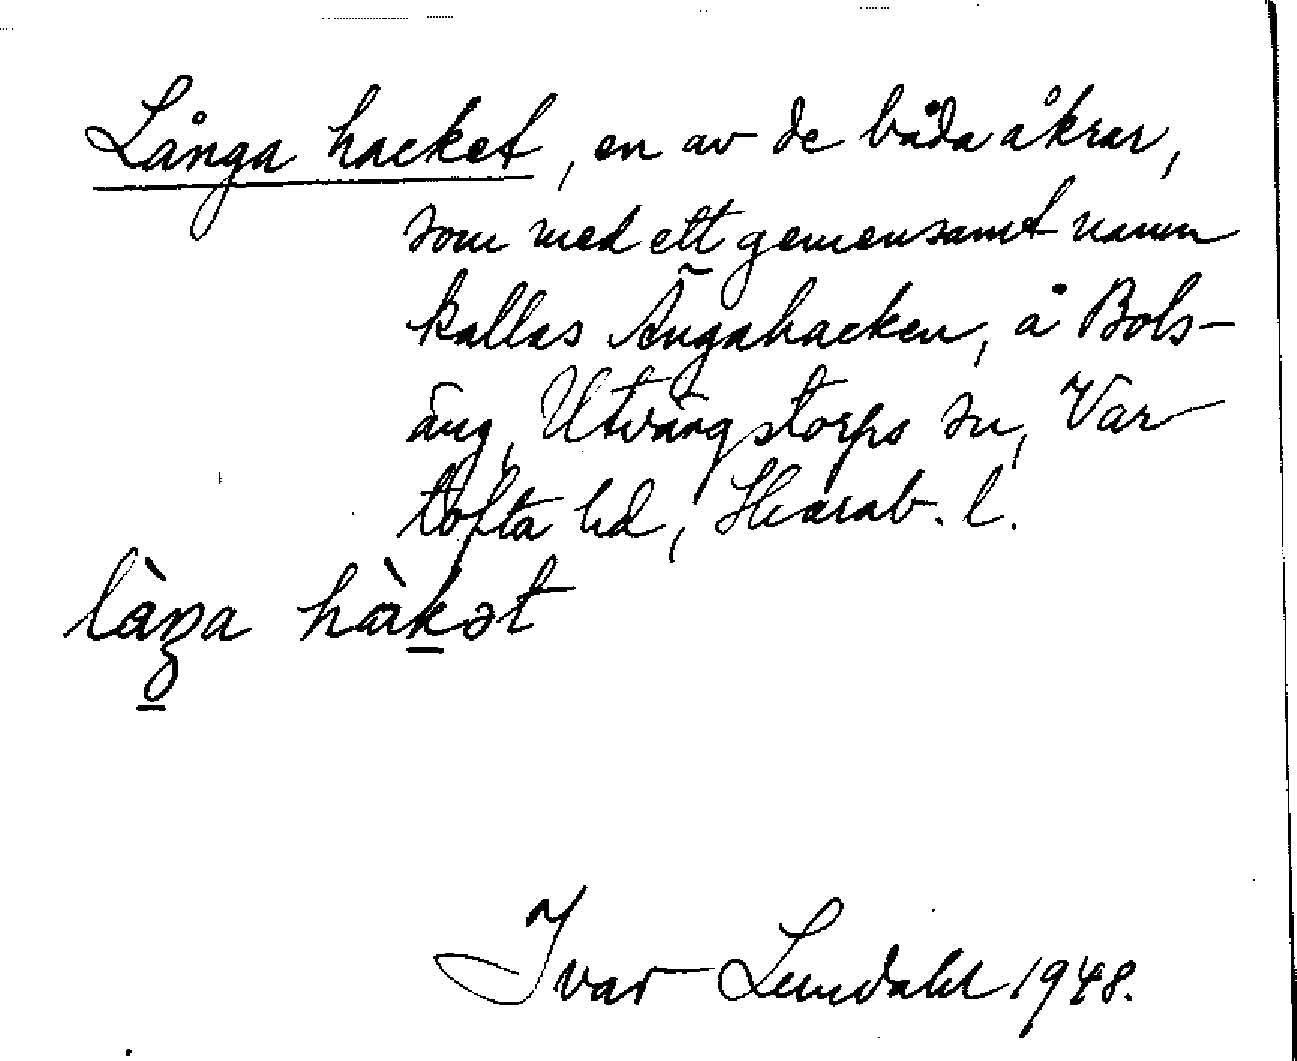 Långa hacket, en av de båda åkrar,
som med ett gemensamt namn
kallas Ängahacken, å Bols-
äng, Utvängstorps sn, Var
tofta hd, Skarab. l.
làŋa hàkət
Ivar Lundahl 1948.